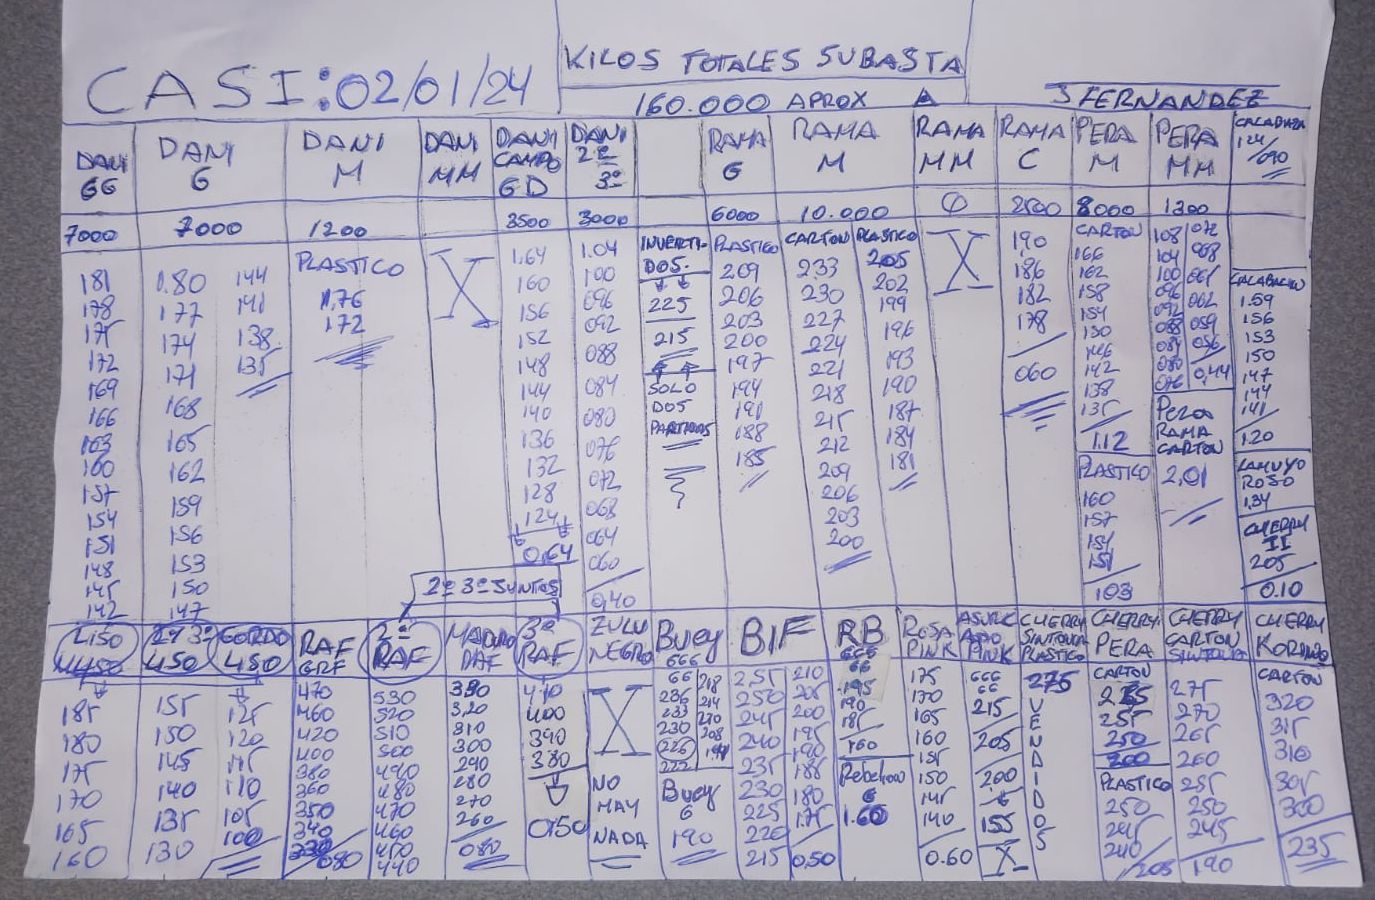 KILOS TOTALES SUBASTA
CASI: 02/01/24
160.000 APROX
J FERNANDEZ
DANI GG
DANI G
DANI M
DANI MM
DANI CAMPO GD
DANI 2ª 3ª
RAMA G
RAMA M
RAMA MM
RAMA C
PERA M
PERA MM
CALABAZA 124/090
7000 7000 1200 3500 3000 6000 10.000 2500 8000 1300
181
178
175
172
169
166
163
160
157
154
151
148
145
142
0.80 144
177 141
174 138
171 135
168
165
162
159
156
153
150
147
PLASTICO
1,76
172
X
1.64
160
156
152
148
144
140
136
132
128
124
0,64
1.04
100
096
092
088
084
080
076
072
068
064
060
0,40
INVERTI-
DOS.
225
215
SOLO
DOS
PARTIDAS
PLASTICO
209
206
203
200
197
194
191
188
185
CARTON PLASTICO
233 205
230 202
227 199
224 196
221 193
218 190
215 187
212 184
209 181
206
203
200
X
190
186
182
178
060
CARTON
166
162
158
154
150
146
142
138
135
1.12
PLASTICO
160
157
154
151
103
108 072
104 068
100
096 062
092 059
088 056
084
080 0,44
076
Pera
RAMA
CARTON
2,01
CALABACIN
1.59
156
153
150
147
144
141
120
LAMUYO
ROJO
1,34
CHERRY
II
205
0.10
2ª 3ª JUNTOS
GORDO
450
RAF
GRF
2ª
RAF
MADURO
RAF
3ª
RAF
ZULU
NEGRO
Buey
666
BIF
RB
666
ROSA
PINK
PINK
CHERRY
SINTONIA
PLASTICO
CHERRY
PERA
CHERRY
CARTON
SINTONIA
CHERRY
KORDINO
185
180
175
170
165
160
155
150
145
140
135
130
125
120
115
110
105
100
470
460
420
400
380
360
350
340
330
080
530
520
510
500
490
480
470
460
450
440
330
320
310
300
290
280
270
260
080
410
400
390
380
0,50
X
NO
HAY
NADA
66 218
236 214
233 210
230 208
226
222
Buey
G
190
255 210
250 205
245 200
240 195
235 190
230 185
225 180
220 175
215 0,50
66
195
190
185
160
Rebellion
G
1.60
175
170
165
160
155
150
145
140
0.60
666
66
215
205
200
155
X
275
V
E
N
D
I
D
O
S
CARTON
275
255
250
200
PLASTICO
250
245
240
205
275
270
265
260
255
250
245
190
CARTON
320
315
310
305
300
235